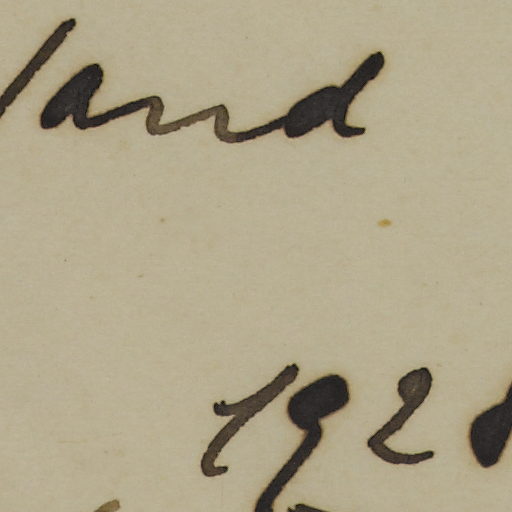 land
192